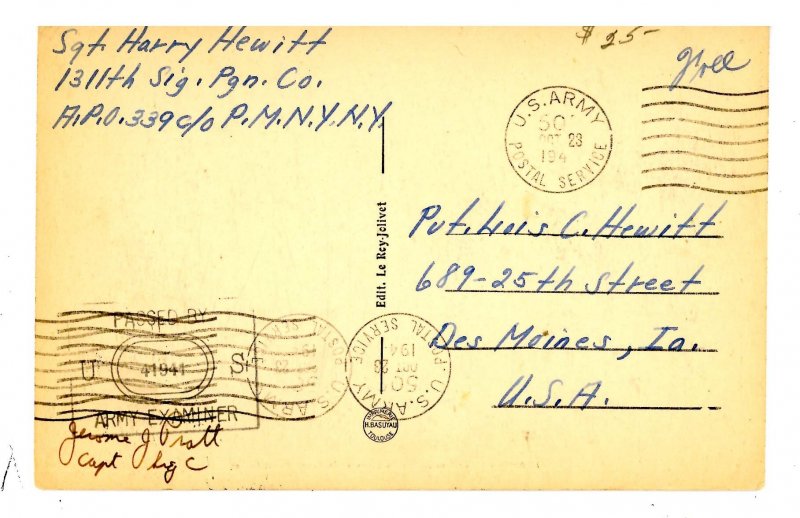 $ 25-
Sgt. Harry Hewitt
1311th Sig. Pgn. Co.
A.P.O. 339 c/o P.M.N.Y.N.Y.
Free
U.S. ARMY
POSTAL SERVICE
50
OCT 23
194
Edit. Le Rey-Jolivet
Pvt. Lois C. Hewitt
689-25th Street
Des Moines, Ia.
U.S.A.
PASSED BY
U S
41941
ARMY EXAMINER
U.S. ARMY
POSTAL SERVICE
U.S. ARMY
POSTAL SERVICE
50
OCT 23
194
IMPRIMERIE
H. BASUYAU
TOULOUSE
Jerome J Pratt
Capt Sig C